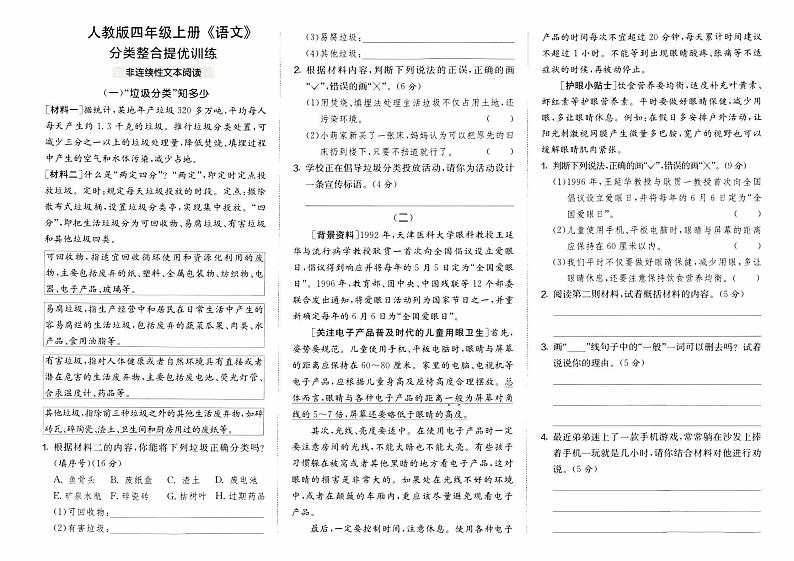 人教版四年级上册《语文》
分类整合提优训练
非连续性文本阅读
(一)“垃圾分类”知多少
[材料一]据统计,某地年产垃圾 320 多万吨,平均每人
每天产生约 1.3 千克的垃圾。推行垃圾分类处置,可
减少三分之一以上的垃圾处理量,降低焚烧、填埋过程
中产生的空气和水体污染,减少占地。
[材料二]什么是“两定四分”?“两定”,即定时定点投
放垃圾。定时:规定每天垃圾投放的时段。定点:撤除
散布式垃圾桶,设置垃圾分类亭,实现集中投放。“四
分”,即把生活垃圾分为可回收物、易腐垃圾、有害垃圾
和其他垃圾四类。
可回收物,指适宜回收循环使用和资源化利用的废
物,主要包括废弃的纸、塑料、金属包装物、纺织物、电
器、电子产品、玻璃等。
易腐垃圾,指生产经营中和居民在日常生活中产生的
容易腐烂的生活垃圾,包括废弃的蔬菜瓜果、肉类、水
产品、食用油脂等。
有害垃圾,指对人体健康或者自然环境具有直接或者
潜在危害的生活废弃物,主要包括废电池、荧光灯管、
含汞温度计、药品等。
其他垃圾,指除前三种垃圾之外的其他生活废弃物,如碎
砖瓦、碎陶瓷、渣土、卫生间和厨房用过的废纸等。
1. 根据材料二的内容,你能将下列垃圾正确分类吗?
(填序号)(16 分)
A. 鱼骨头 B. 废纸盒 C. 渣土 D. 废电池
E. 矿泉水瓶 F. 碎瓷砖 G. 桔树叶 H. 过期药品
(1)可回收物:
(2)有害垃圾:
(3)易腐垃圾:
(4)其他垃圾:
2. 根据材料内容,判断下列说法的正误,正确的画
“✓”,错误的画“×”。(6 分)
(1)用焚烧、填埋法处理生活垃圾不仅占用土地,还
污染环境。 ( )
(2)小萌家新买了一张床,妈妈认为可以把原先的旧
床扔到楼下,只要不挡道就行了。 ( )
3. 学校正在倡导垃圾分类投放活动,请你为活动设计
一条宣传标语。(4 分)
(二)
[背景资料]1992 年,天津医科大学眼科教授王延
华与流行病学教授耿贯一首次向全国倡议设立爱眼
日,倡议得到响应并将每年的 5 月 5 日定为“全国爱眼
日”。1996 年,教育部、团中央、中国残联等 12 个部委
联合发出通知,将爱眼日活动列为国家节日之一,并重
新确定每年的 6 月 6 日为“全国爱眼日”。
[关注电子产品普及时代的儿童用眼卫生]首先,
姿势要规范。儿童使用手机、平板电脑时,眼睛与屏幕
的距离应保持在 60~80 厘米。家里的电脑、电视机等
电子产品,应根据儿童身高及座椅高度合理摆放。总
体而言,眼睛与各种电子产品的距离一般为屏幕对角
线的 5~7 倍,屏幕还要略低于眼睛的高度。
其次,光线、亮度要适中。在使用电子产品时一定
要注意房间的光线,不能太暗也不能太亮。有些孩子
习惯躲在被窝或者其他黑暗的地方看电子产品,这对
眼睛的损害是非常大的。如果处在光线不好的环境
中,或者在颠簸的车厢内,更应该尽量避免观看电子
产品。
最后,一定要控制时间,注意休息。使用各种电子
产品的时间每次不宜超过 20 分钟,每天累计时间建议
不超过 1 小时。不能等到出现眼睛酸疼、胀痛等不适
症状的时候,再被动停止。
[护眼小贴士]饮食营养要均衡,适度补充叶黄素、
虾红素等护眼营养素。平时要做好眼睛保健,减少用
眼,多让眼睛休息。例如:在假日多安排户外活动,让
阳光刺激视网膜产生微量多巴胺,宽广的视野也可以
缓解眼睛肌肉紧张。
1. 判断下列说法,正确的画“✓”,错误的画“×”。(9 分)
(1)1996 年,王延华教授与耿贯一教授首次向全国
倡议设立爱眼日,并将每年的 6 月 6 日定为“全
国爱眼日”。 ( )
(2)儿童使用手机、平板电脑时,眼睛与屏幕的距离
应保持在 60 厘米以内。 ( )
(3)我们平时不仅要做好眼睛保健,减少用眼,多让
眼睛休息,还要注意保持饮食营养均衡。( )
2. 阅读第二则材料,试着概括材料的内容。(5 分)
3. 画“____”线句子中的“一般”一词可以删去吗?试着
说说你的理由。(5 分)
4. 最近弟弟迷上了一款手机游戏,常常躺在沙发上捧
着手机一玩就是几小时,请你结合材料对他进行劝
说。(5 分)